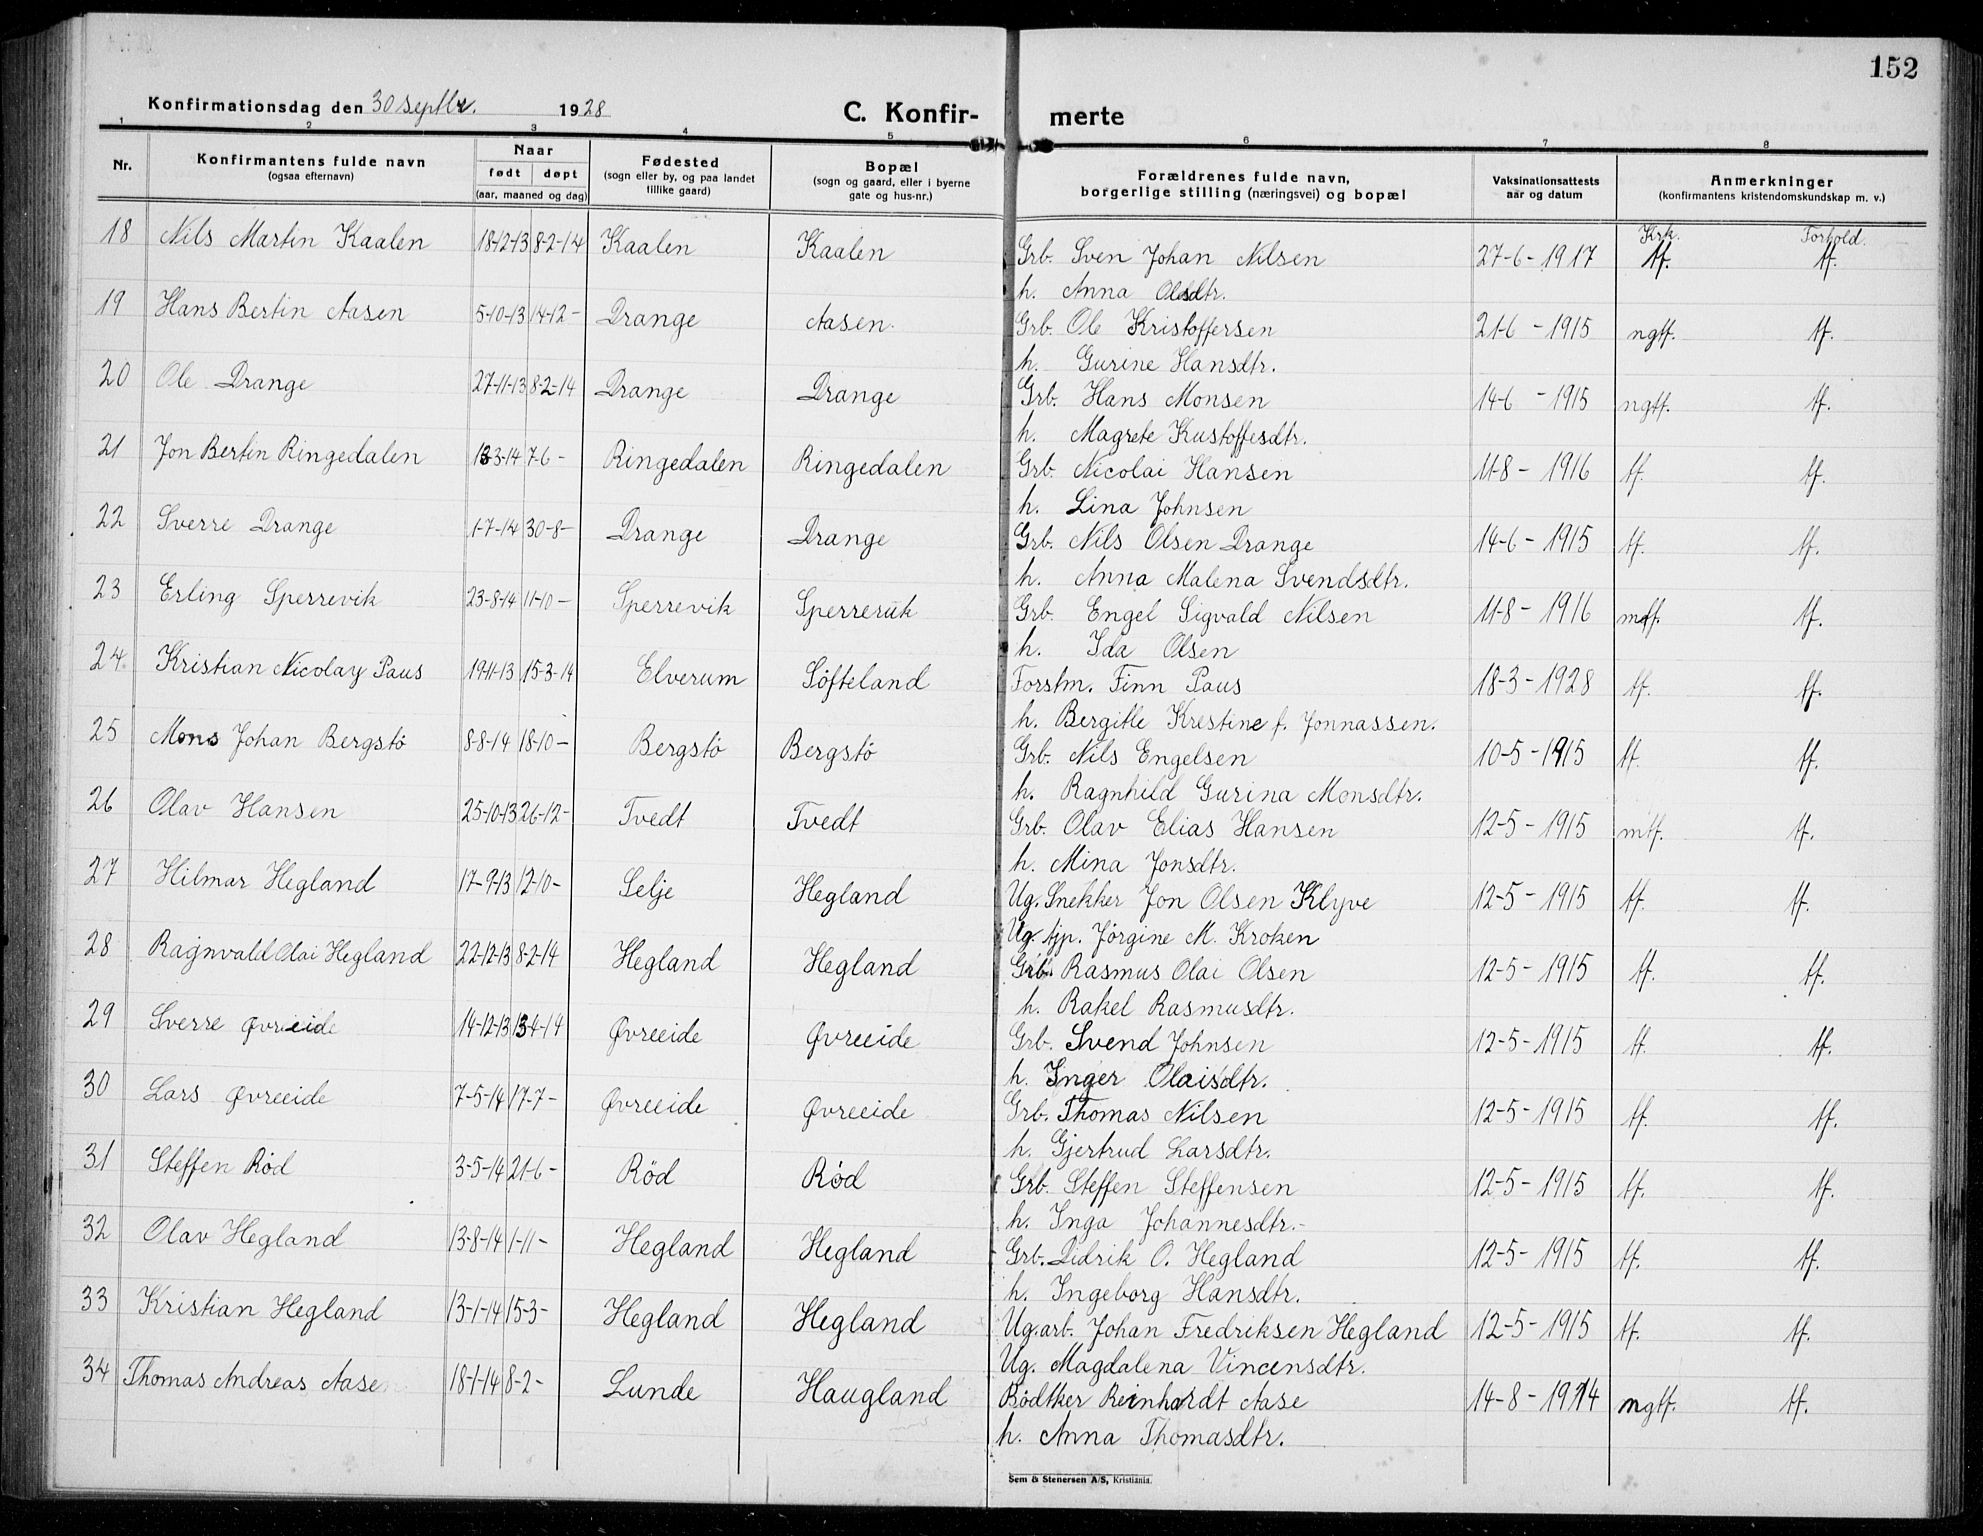 152
Konfirmationsdag den 30 septbr. 1928
C. Konfirmerte
1 2 3 4 5 6 7 8
Nr. | Konfirmantens fulde navn (ogsaa efternavn) | Naar født døpt (aar, maaned og dag) | Fødested (sogn eller by, og paa landet tillike gaard) | Bopæl (sogn og gaard, eller i byerne gate og hus-nr.) | Forældrenes fulde navn, borgerlige stilling (næringsvei) og bopæl | Vaksinationsattests aar og datum | Anmerkninger (konfirmantens kristendomskundskap m. v.)
Krk. Forhold.
18 Nils Martin Kaalen 18-12-13 8-2-14 Kaalen Kaalen Grb. Sven Johan Nilsen 27-6-1917 tf. tf.
h. Anna Olsdtr.
19 Hans Bertin Aasen 5-10-13 14-12- Drange Aasen. Grb. Ole Kristoffersen 21-6-1915 ngtf. tf.
h. Gurine Hansdtr.
20 Ole Drange 27-11-13 8-2-14 Drange Drange Grb. Hans Monsen 14-6-1915 ngtf. tf.
h. Magrete Kustoffesdtr.
21 Jon Bertin Ringedalen 13-3-14 7-6- Ringedalen Ringedalen Grb. Nicolai Hansen 11-8-1916 tf. tf.
h. Lina Johnsen
22 Sverre Drange 1-7-14 30-8- Drange Drange Grb. Nils Olsen Drange 14-6-1915 tf. tf.
h. Anna Malena Svendsdtr.
23 Erling Sperrevik 23-8-14 11-10- Sperrevik Sperrevik Grb. Engel Sigvald Nilsen 11-8-1916 mtf. tf.
h. Ida Olsen
24. Kristian Nicolay Paus 19-11-13 15-3-14 Elverum Söfteland Forstm. Finn Paus 18-3-1928 tf. tf.
h. Bergitte Krestine f. Jonnassen.
25 Mons Johan Bergstö 8-8-14 18-10- Bergstö Bergstö Grb. Nils Engelsen 10-5-1915 tf. tf.
h. Ragnhild Gurina Monsdtr.
26 Olav Hansen 25-10-13 26-12- Tvedt Tvedt Grb. Olav Elias Hansen 12-5-1915 mtf. tf.
h. Mina Jonsdtr.
27 Hilmar Hegland 17-9-13 12-10- Selje Hegland Ug. Snekker Jon Olsen Klyve 12-5-1915 tf. tf.
Ug. tjp. Jörgine M. Kroken
28 Ragnvald Olai Hegland 22-12-13 8-2-14 Hegland Hegland Grb. Rasmus Olai Olsen 12-5-1915 tf. tf.
h. Rakel Rasmusdtr.
29 Sverre Øvreeide 14-12-13 13-4-14 Øvreeide Øvreeide Grb. Svend Johnsen 12-5-1915 tf. tf.
h. Inger Olaisdtr.
30 Lars Øvreeide 7-5-14 17-7- Øvreeide Øvreeide Grb. Thomas Nilsen 12-5-1915 tf. tf.
h. Gjertrud Larsdtr.
31 Steffen Röd 3-5-14 21-6- Röd Röd Grb. Steffen Steffensen 12-5-1915 tf. tf.
h. Inga Johannesdtr.-
32 Olav Hegland 13-8-14 1-11- Hegland Hegland Grb. Didrik O. Hegland 12-5-1915 tf. tf.
h. Ingeborg Hansdtr.
33 Kristian Hegland 13-1-14 15-3- Hegland Hegland Ug. arb. Johan Fredriksen Hegland 12-5-1915 tf. tf.
Ug. Magdalena Vincensdtr.
34 Thomas Andreas Aase 18-1-14 8-2- Lunde Haugland Bödtker Reinhardt Aase 14-8-1914 ngtf. tf.
h. Anna Thomasdtr.
Sem & Stenersen A/S, Kristiania.